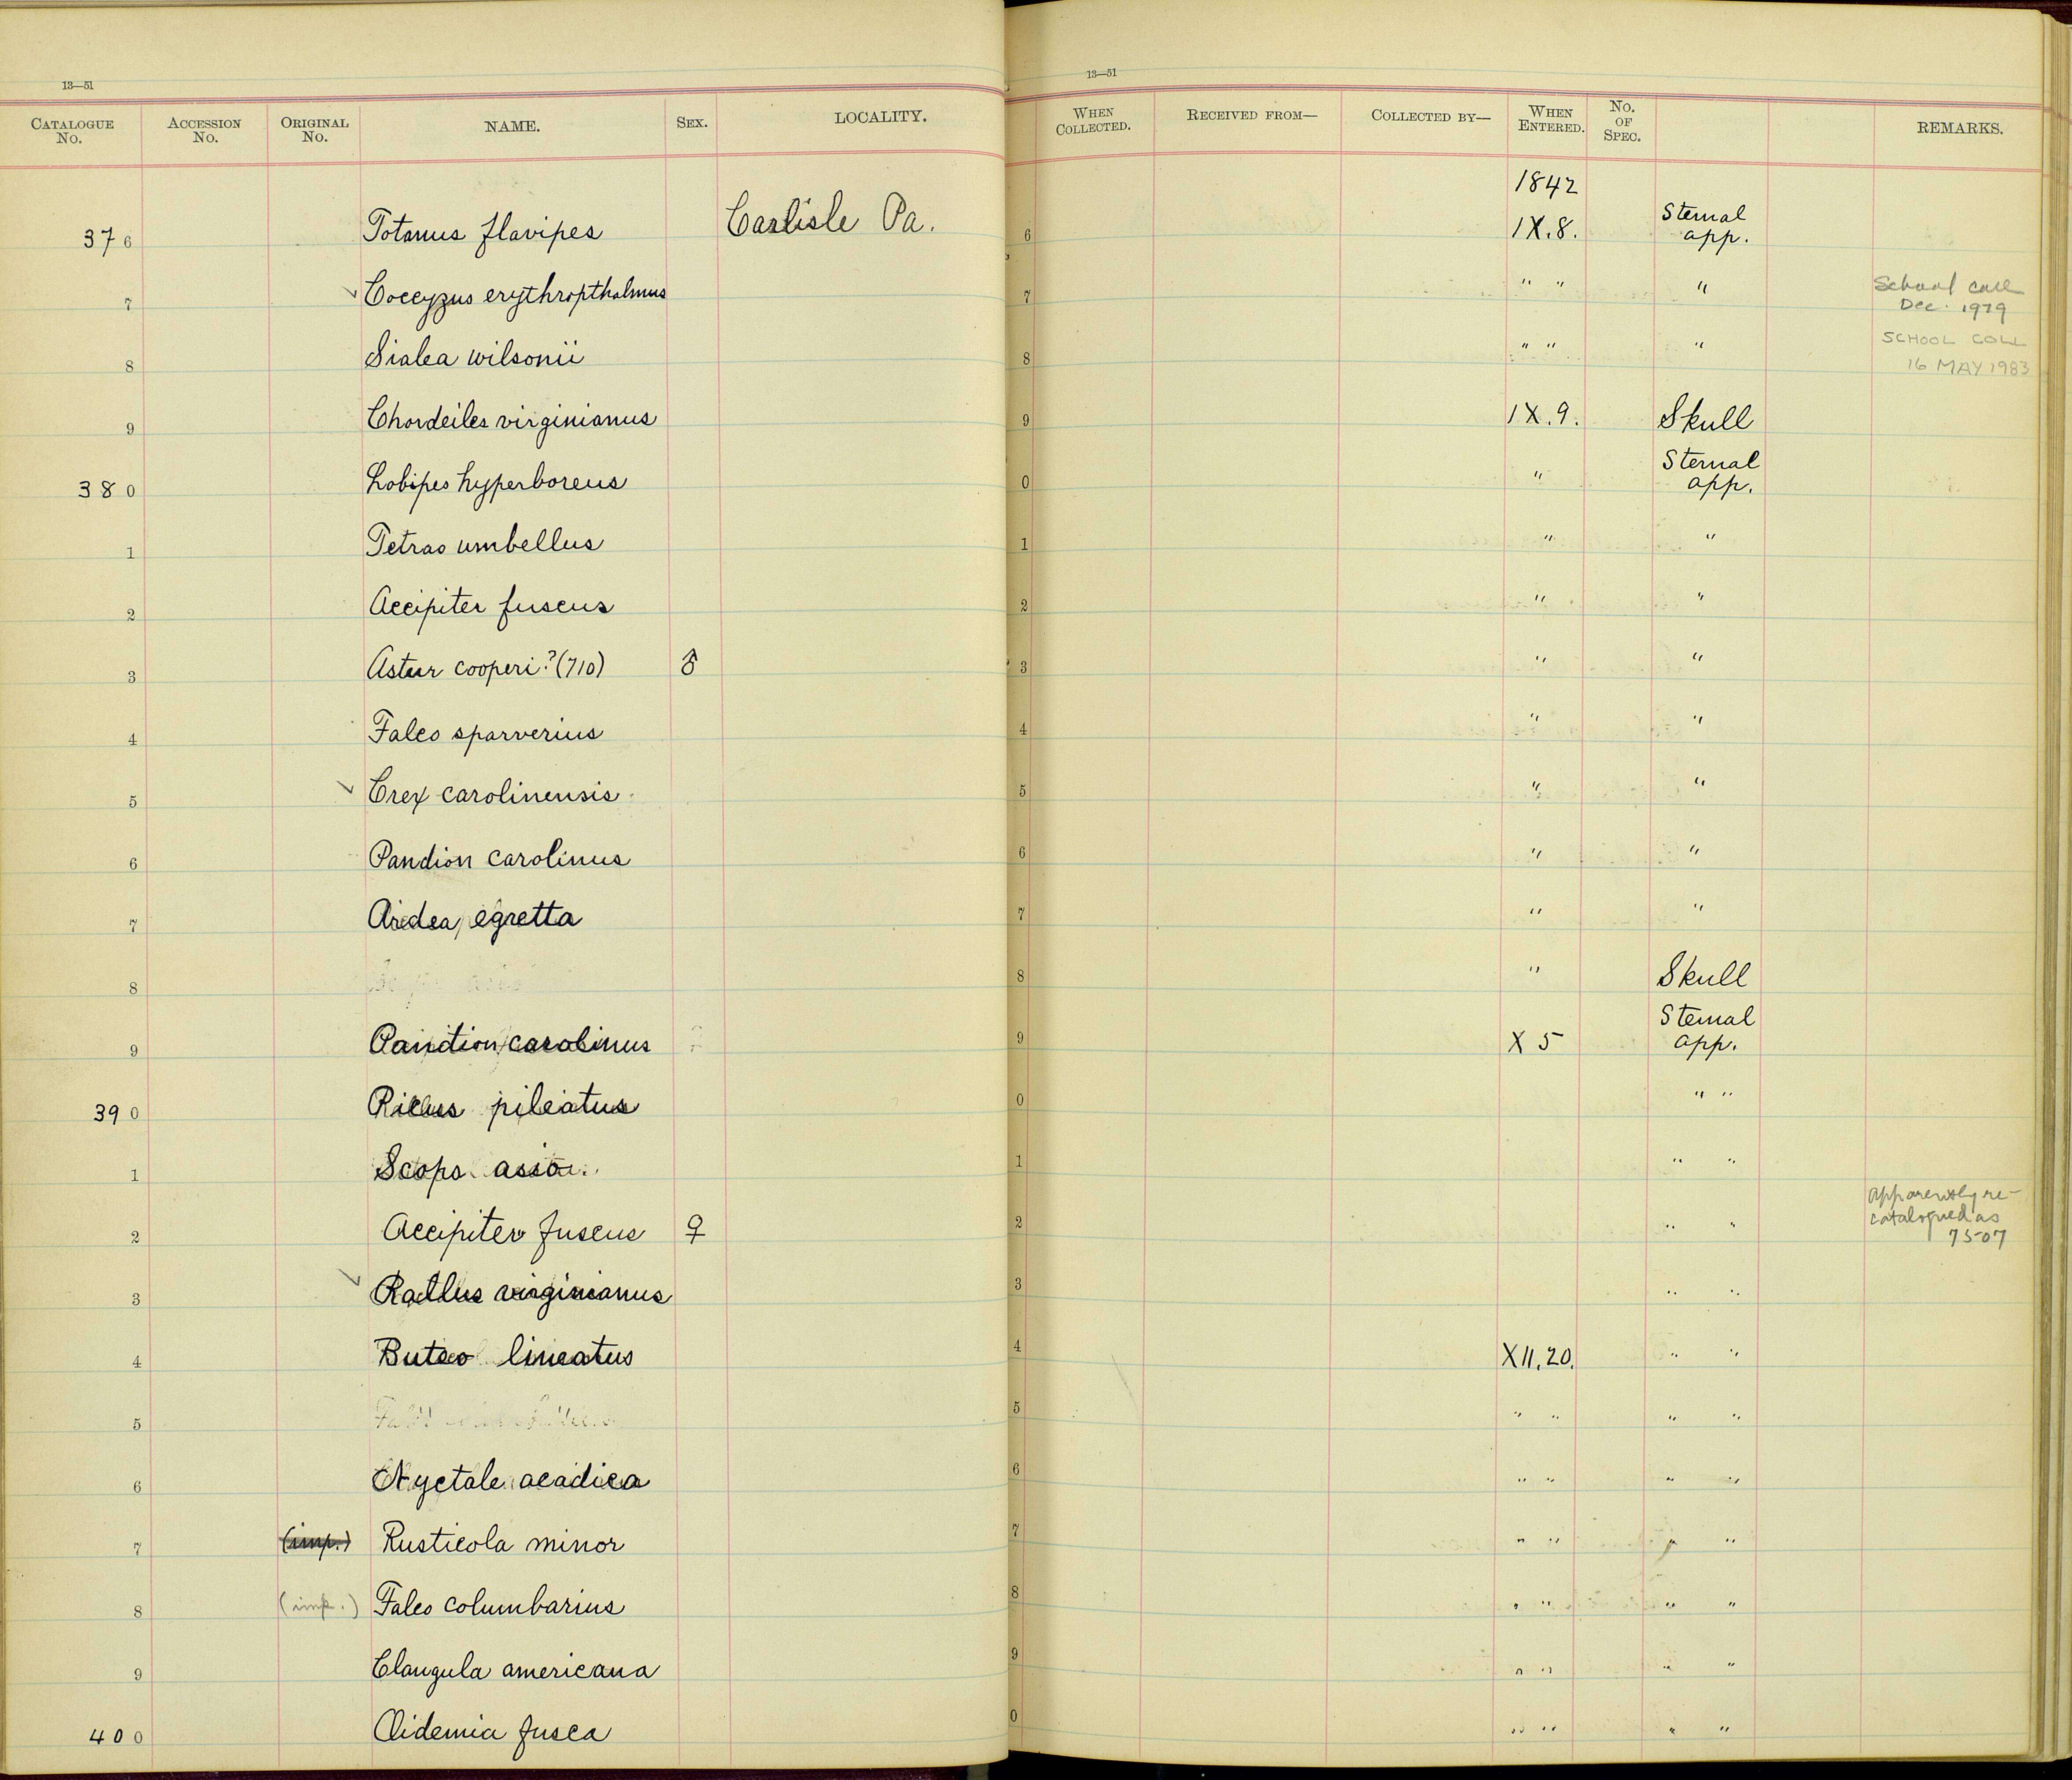 13—51
CATALOGUE No. ACCESSION No. ORIGINAL No. NAME. SEX. LOCALITY.
376 Totanus flavipes Carlisle Pa.
7 Coccyzus erythropthalmus
8 Sialea wilsonii
9 Chordeiles virginianus
380 Lobipes hyperboreus
1 Tetrao umbellus
2 Accipiter fuscus
3 Astur cooperi? (710) ♂
4 Falco sparverius
5 Crex carolinensis
6 Pandion carolinus
7 Ardea egretta
8
9 Pandion carolinus
390 Picus pileatus
1 Scops asio.
2 Accipiter fuscus ♀
3 Rallus virginianus
4 Buteo lineatus
5
6 Nyctale acadica
7 (imp.) Rusticola minor
8 (imp.) Falco columbarius
9 Clangula americana
400 Oidemia fusca
13—51
WHEN COLLECTED. RECEIVED FROM— COLLECTED BY— WHEN ENTERED. No. OF SPEC. REMARKS.
1842
6 IX.8. Sternal app.
7 " " " School coll Dec. 1979
8 " " " SCHOOL COLL 16 MAY 1983
9 IX.9. Skull
0 " Sternal app.
1 " "
2 " "
3 " "
4 " "
5 " "
6 " "
7 " "
8 " Skull
9 X 5 Sternal app.
0 " "
1 " "
2 " " Apparently re-
catalogued as
7507
3 " "
4 XII.20. " "
5 " " " "
6 " " " "
7 " " " "
8 " " " "
9 " " " "
0 " " " "